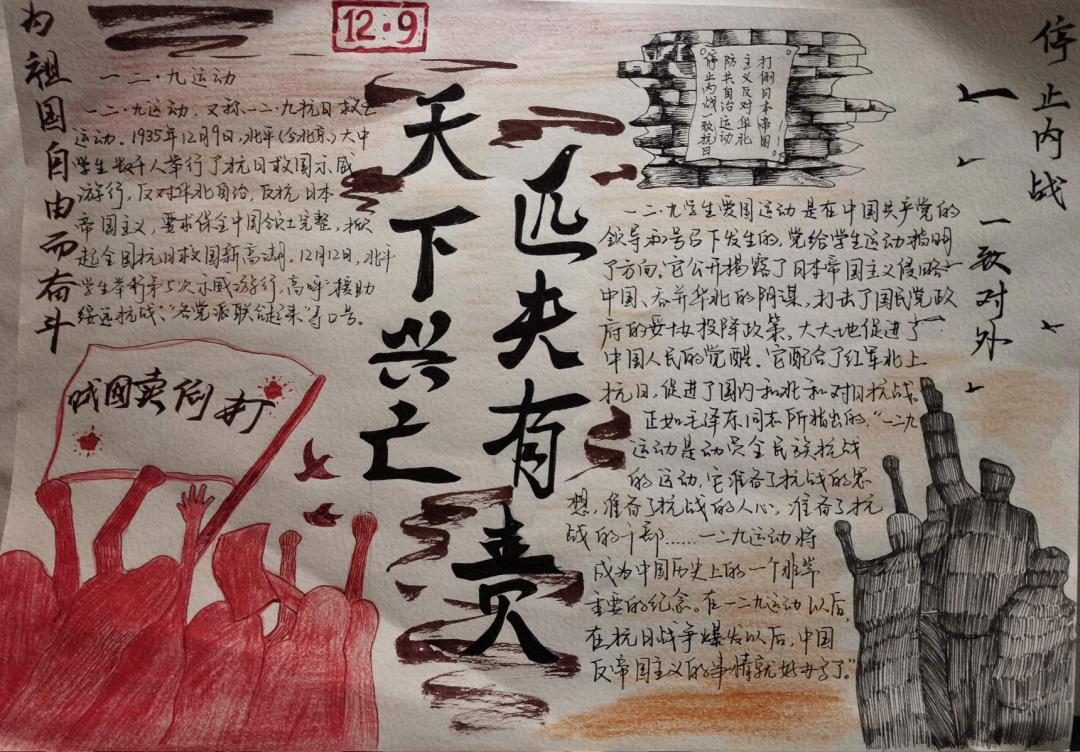 为祖国自由而奋斗
12·9
一二·九运动
一二·九运动，又称一二·九抗日救亡
运动。1935年12月9日，北平(今北京)大中
学生数千人举行了抗日救国示威
游行，反对华北自治，反抗日本
帝国主义，要求保全中国领土完整，掀
起全国抗日救国新高潮。12月12日，北平
学生举行第5次示威游行，高呼"援助
绥远抗战"，"各党派联合起来"等口号。
打倒卖国贼
天下兴亡
匹夫有责
打倒日本帝国
主义反对华北
防共自治运动
停止内战一致抗日
停止内战
一致对外
一二·九学生爱国运动是在中国共产党的
领导和号召下发生的，党给学生运动指明
了方向。它公开揭露了日本帝国主义侵略
中国、吞并华北的阴谋，打击了国民党政
府的妥协投降政策，大大地促进了
中国人民的觉醒。它配合了红军北上
抗日，促进了国内和北和对日抗战。
正如毛泽东同志所指出的，"一二九
运动是动员全民族抗战
的运动，它准备了抗战的思
想，准备了抗战的人心，准备了抗
战的干部……一二九运动将
成为中国历史上的一个非常
主要的纪念。在一二九运动以后，
在抗日战争爆发以后，中国
反帝国主义的事情就好办了。"